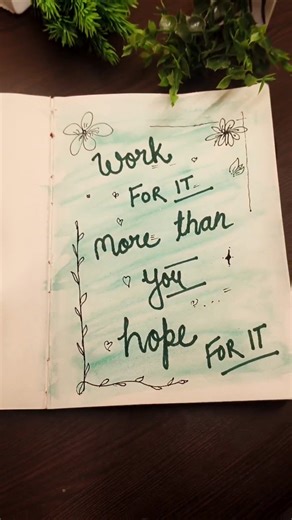 Work
FOR IT
more than
you
hope
FOR IT